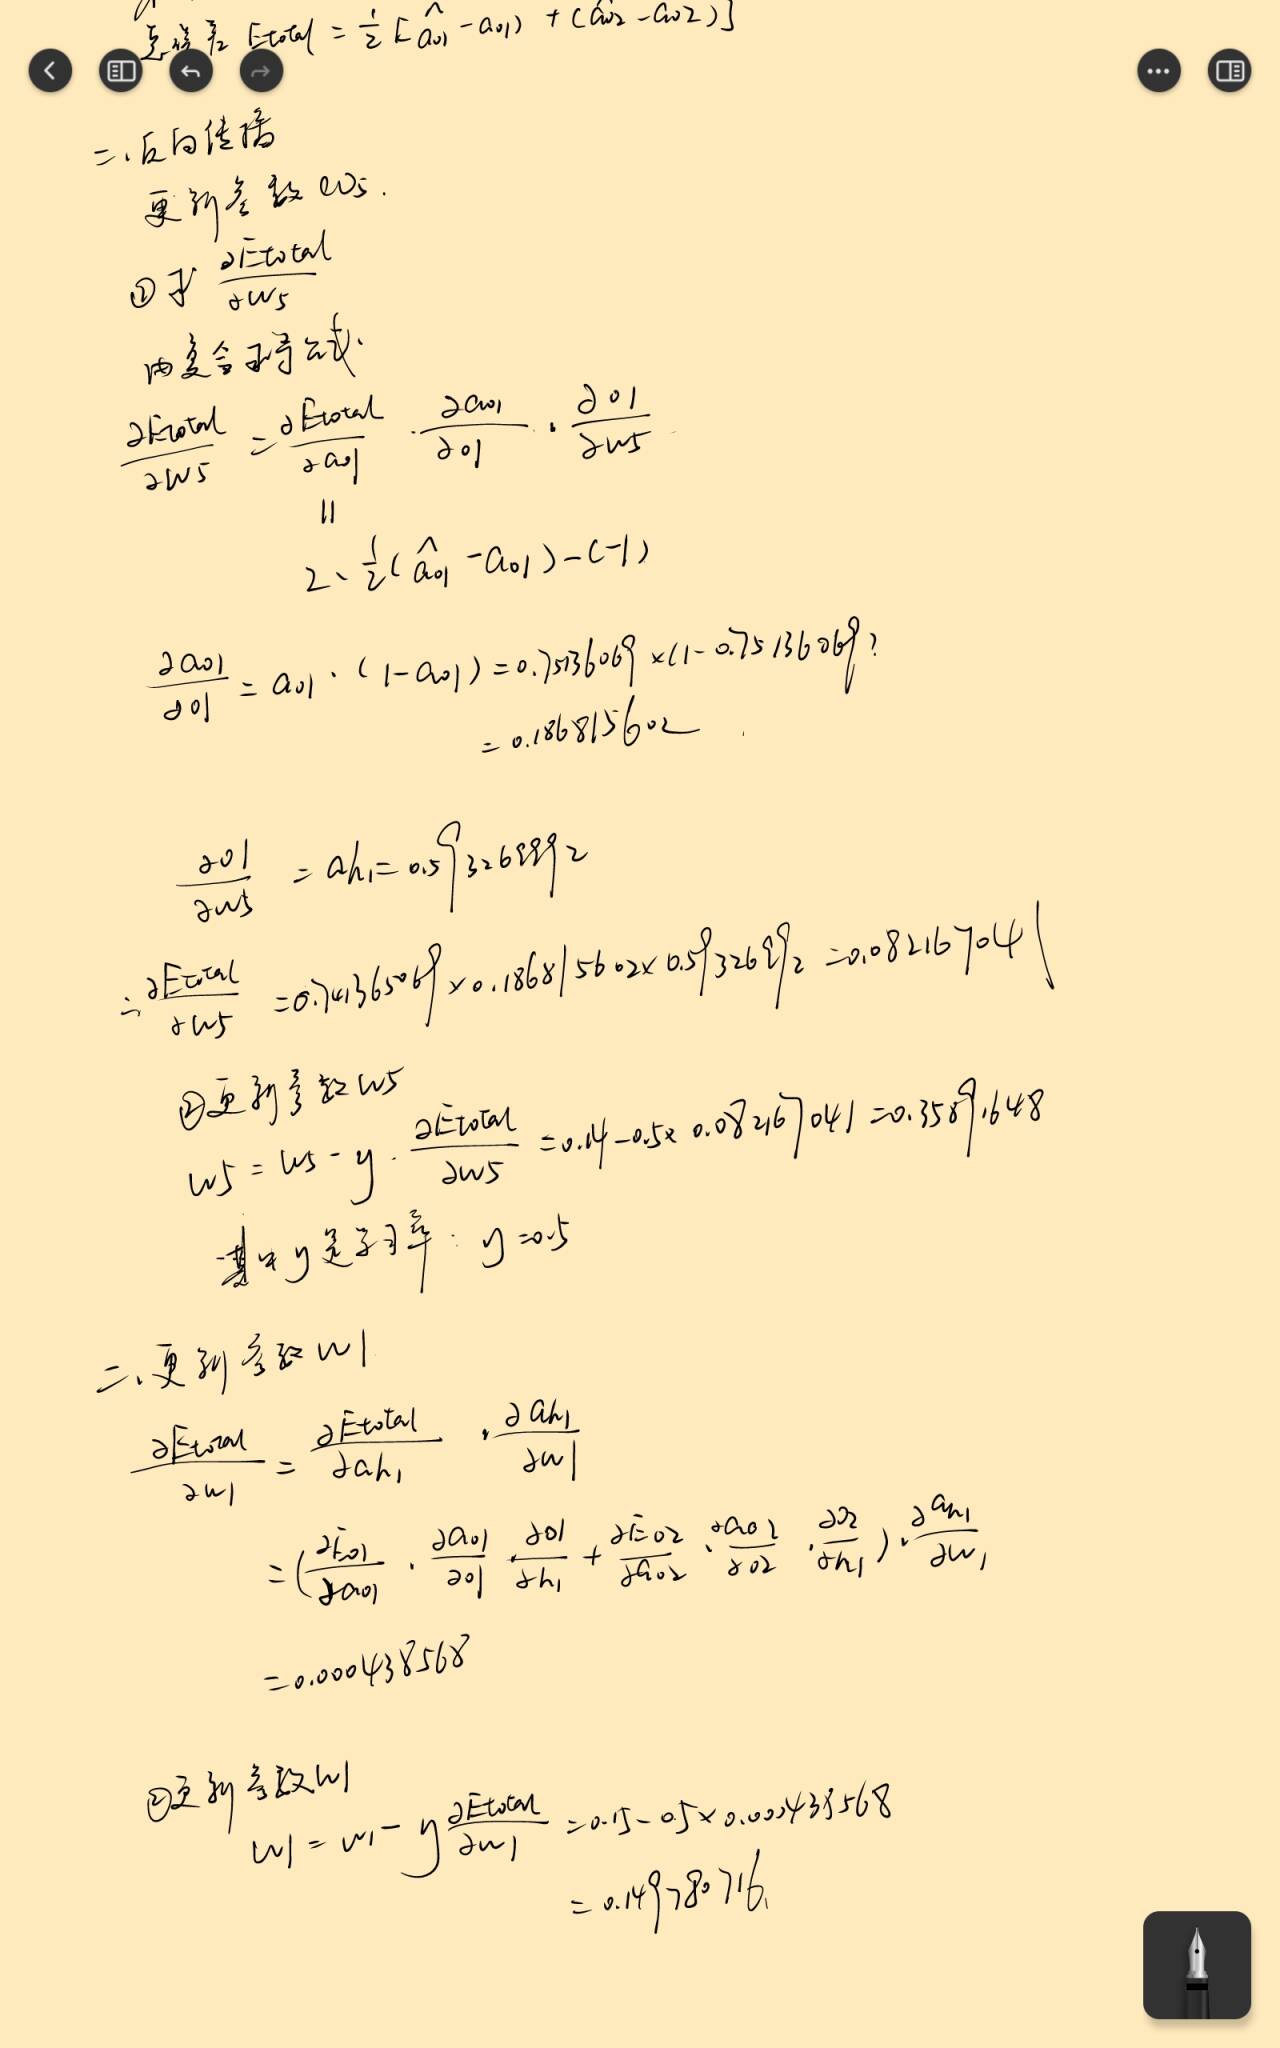 总误差 Etotal = 1/2 [(â01 - a01) + (â02 - a02)]
二、反向传播
更新参数 W5.
① 求 ∂Etotal/∂W5
由复合求导公式.
∂Etotal/∂W5 = ∂Etotal/∂a01 · ∂a01/∂01 · ∂01/∂W5
||
2、1/2 (â01 - a01) - (-1)
∂a01/∂01 = a01 · (1 - a01) = 0.75136069 × (1 - 0.75136069)
= 0.186815602
∂01/∂W5 = ah1 = 0.593269992
∴ ∂Etotal/∂W5 = 0.74136509 × 0.186815602 × 0.59326992 = 0.082167041
② 更新参数 W5
W5 = W5 - y · ∂Etotal/∂W5 = 0.14 - 0.5 × 0.082167041 = 0.3589.648
其中 y 是学习率: y = 0.5
二、更新参数 W1
∂Etotal/∂W1 = ∂Etotal/∂ah1 · ∂ah1/∂W1
= (∂E01/∂a01 · ∂a01/∂01 · ∂01/∂h1 + ∂E02/∂a02 · ∂a02/∂02 · ∂02/∂h1) · ∂ah1/∂W1
= 0.000438568
② 更新参数 W1
W1 = W1 - y ∂Etotal/∂W1 = 0.15 - 0.5 × 0.000438568
= 0.149780716